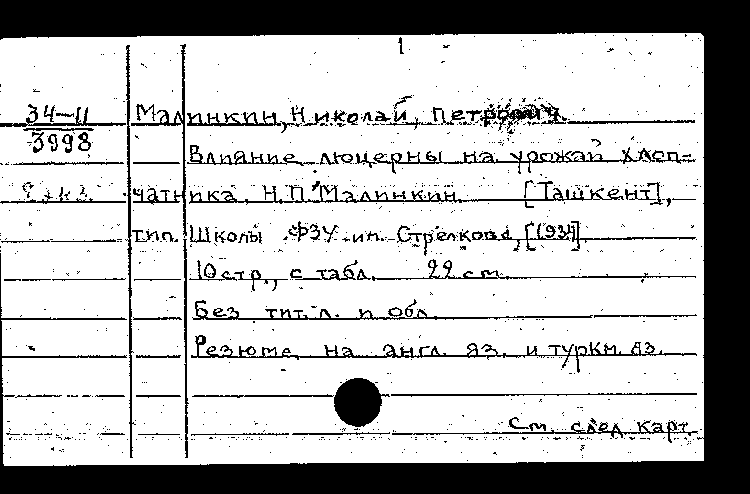 1
34-11 Малинкин, Николай, Петрович.
3998
Влияние люцерны на урожай хлоп-
чатника. Н.П. Малинкин. [Ташкент],
тип. Школы ФЗУ им. Стрелкова, [1934].
10 стр., с табл. 22 см.
Без тит. л. и обл.
Резюме на англ. яз. и туркм. яз.
См. след. карт.